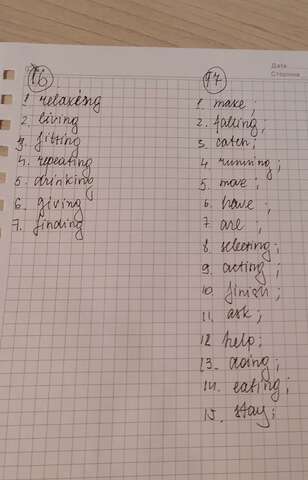 Date
Страница
16
1. relaxing
2. living
3. fitting
4. repeating
5. drinking
6. giving
7. finding
17
1. make;
2. falling;
3. catch;
4. running;
5. move;
6. have;
7. are;
8. selecting;
9. acting;
10. finish;
11. ask;
12. help;
13. doing;
14. eating;
15. stay;